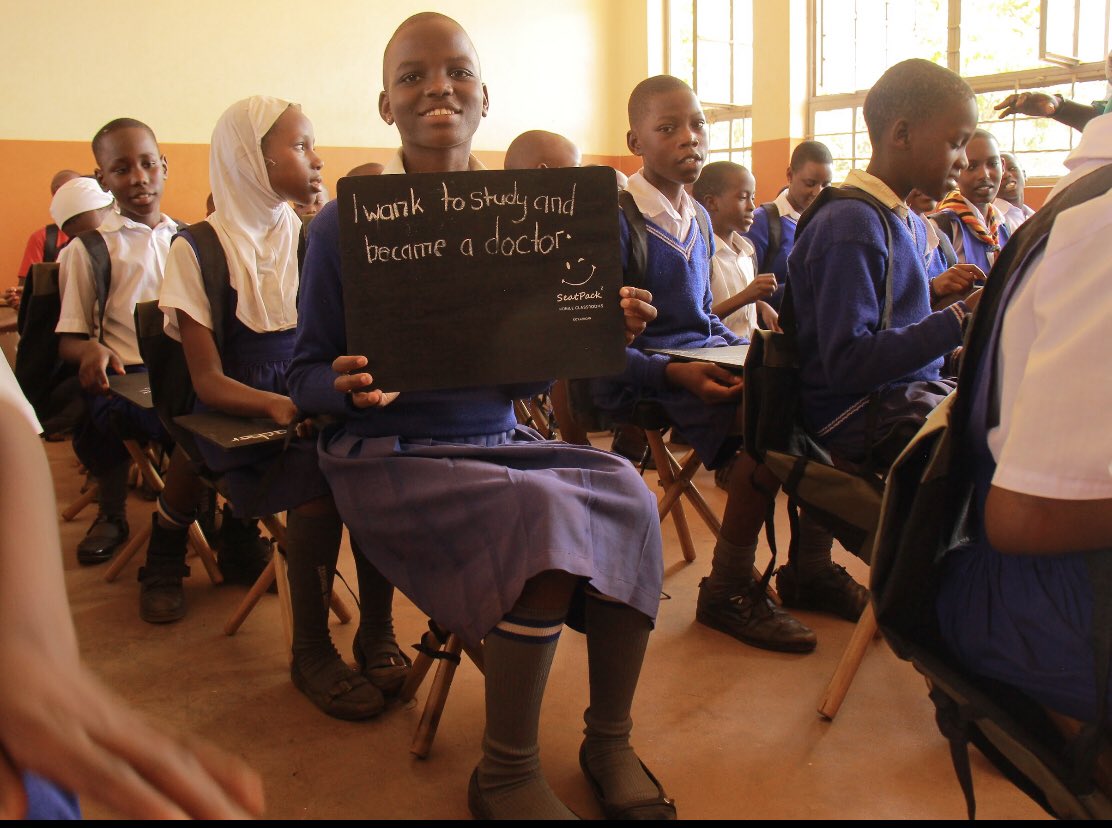 I wank to study and
became a doctor.
SeatPack²
MOBILE CLASSROOMS